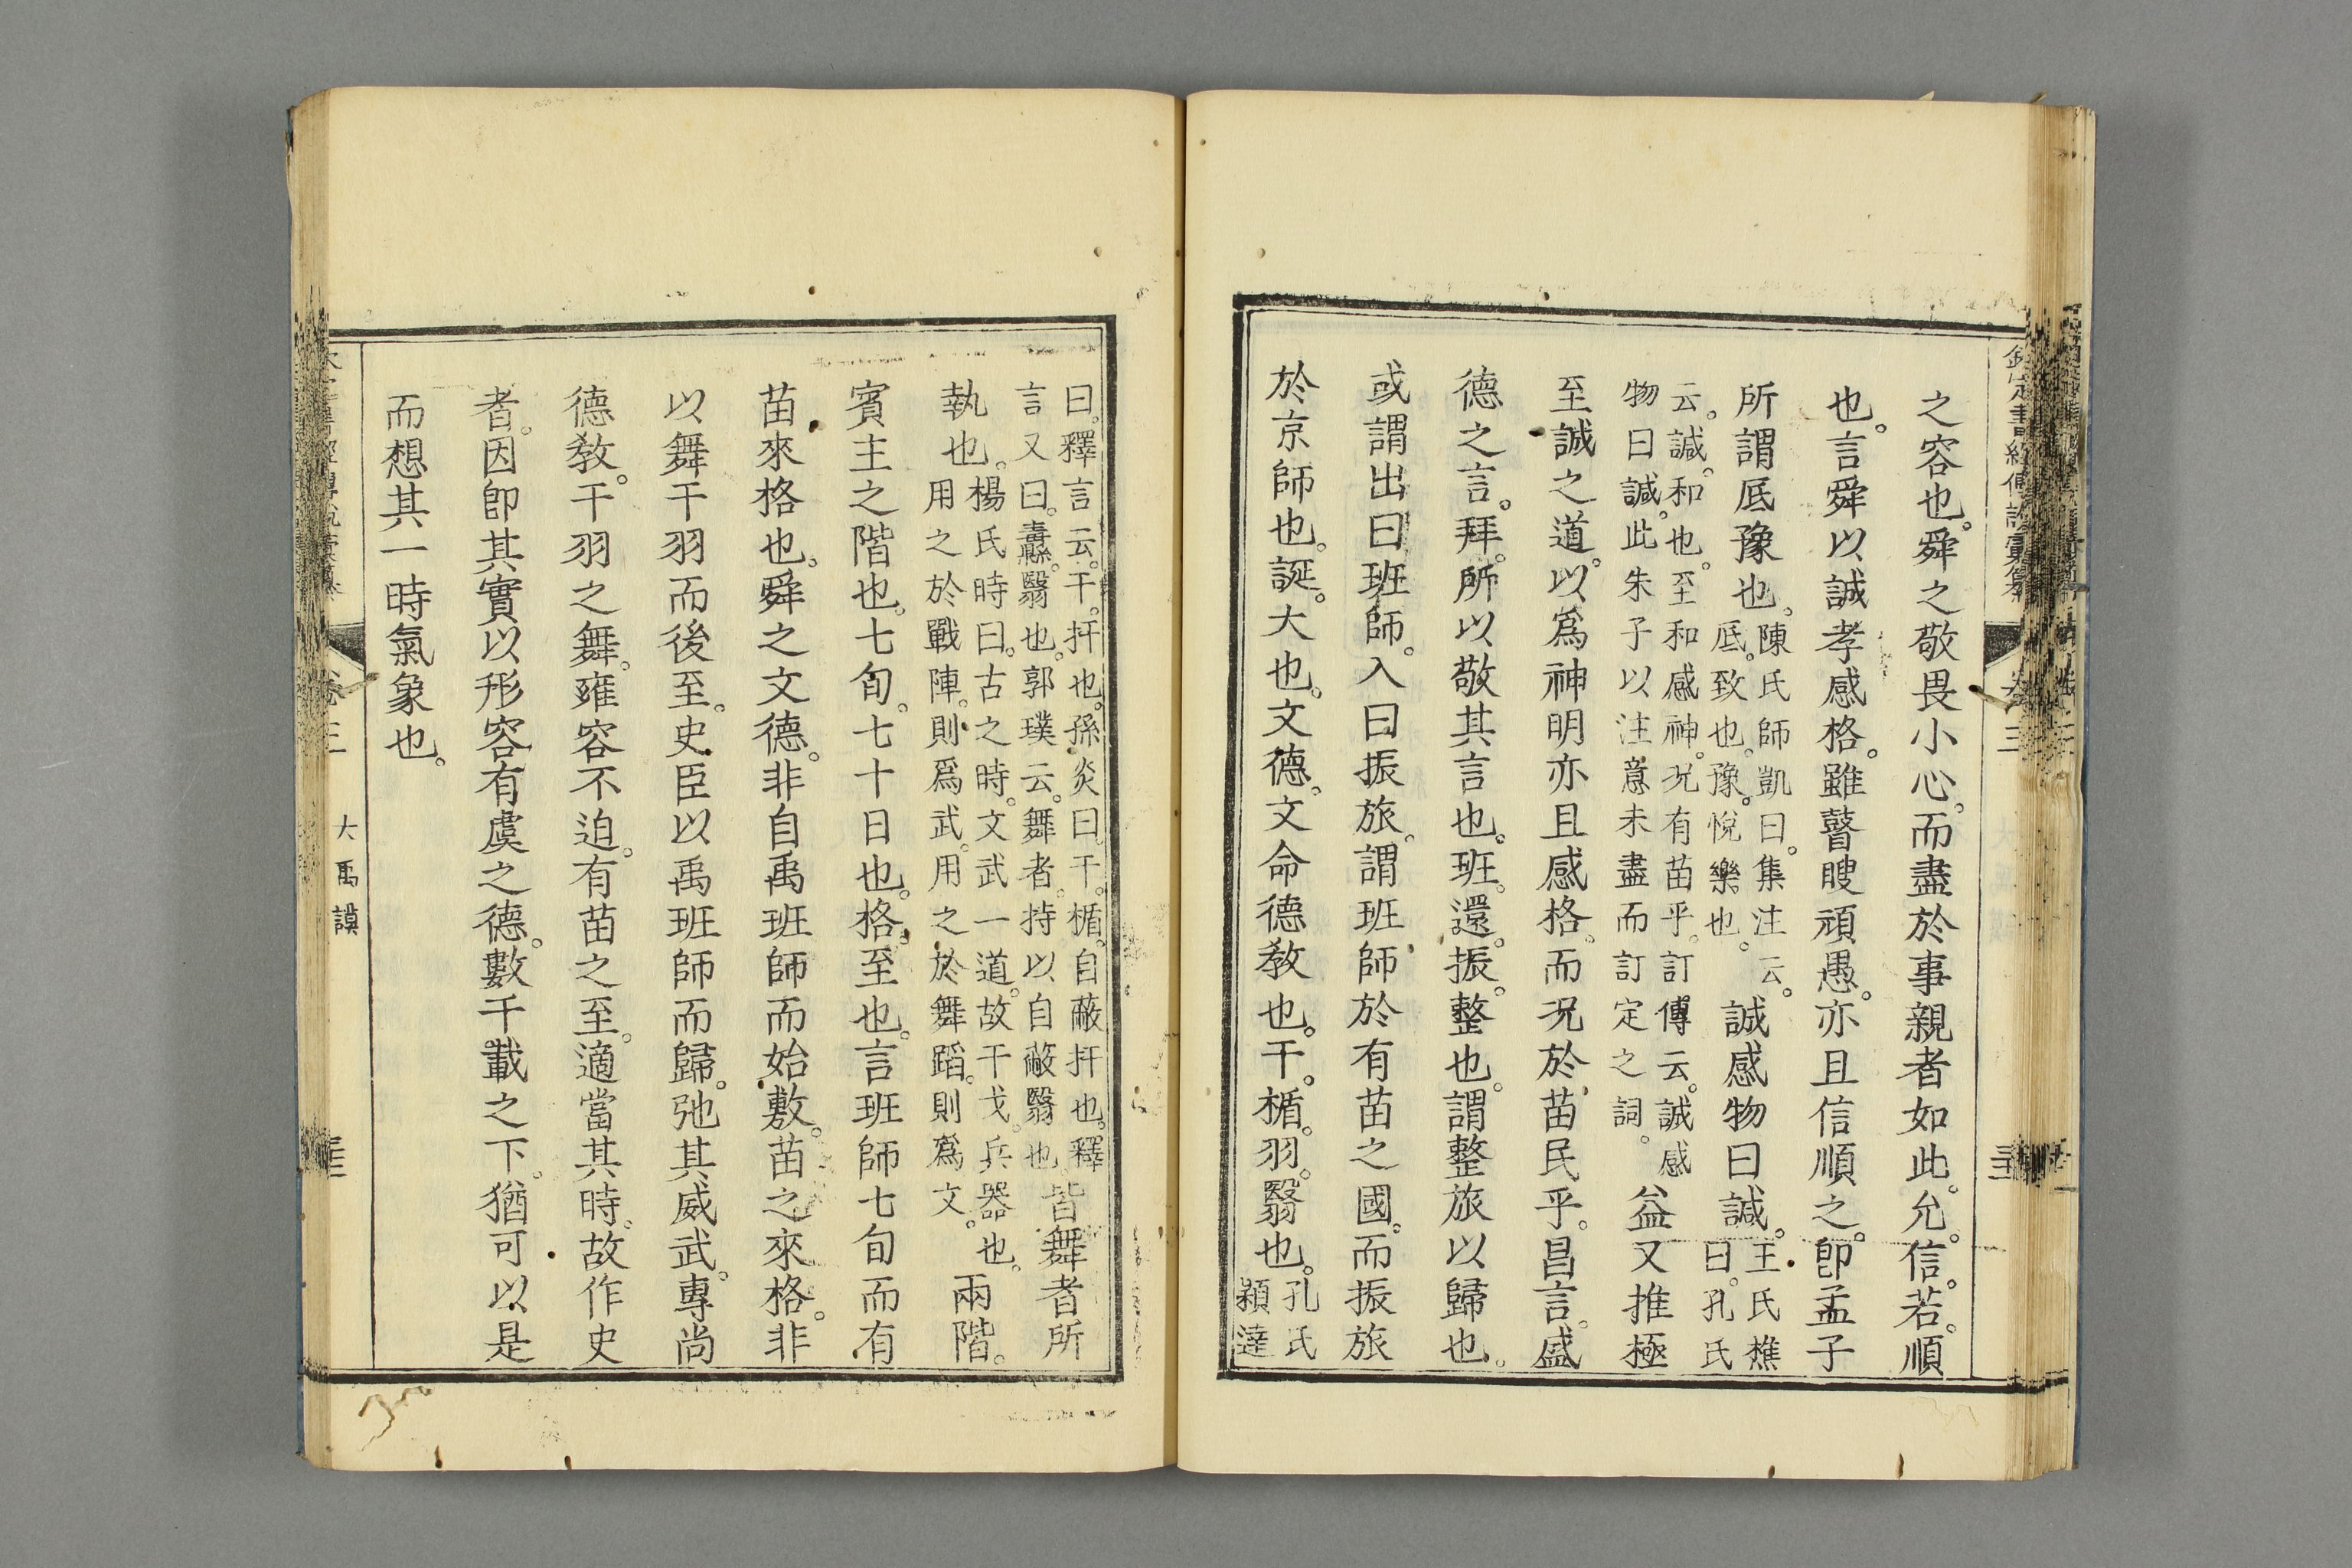 之容也。舜之敬畏小心。而盡於事親者如此。允。信。若。順
也。言舜以誠孝感格。雖瞽瞍頑愚。亦且信順之。卽孟子
所謂底豫也。陳氏師凱曰。集注云。
底。致也。豫。悅樂也。
誠感物曰諴。王氏樵
曰。孔氏
云。諴。和也。至和感神。况有苗乎。訂傳云。誠感
物曰諴。此朱子以注意未盡而訂定之詞。
益又推極
至諴之道。以爲神明亦且感格。而况於苗民乎。昌言。盛
德之言。拜。所以敬其言也。班。還。振。整也。謂整旅以歸也。
或謂出曰班師。入曰振旅。謂班師於有苗之國。而振旅
於京師也。誕。大也。文德。文命德敎也。干。楯。羽。翳也。孔氏
穎達
曰。釋言云。干。扞也。孫炎曰。干。楯。自蔽扞也。釋
言又曰。纛。翳也。郭璞云。舞者。持以自蔽翳也
皆舞者所
執也。楊氏時曰。古之時。文武一道。故干戈。兵器也。
用之於戰陣。則爲武。用之於舞蹈。則爲文。
兩階。
賓主之階也。七旬。七十日也。格。至也。言班師七旬而有
苗來格也。舜之文德。非自禹班師而始敷。苗之來格。非
以舞干羽而後至。史臣以禹班師而歸。弛其威武。專尚
德敎。干羽之舞。雍容不迫。有苗之至。適當其時。故作史
者。因卽其實以形容有虞之德。數千載之下。猶可以是
而想其一時氣象也。
大禹謨